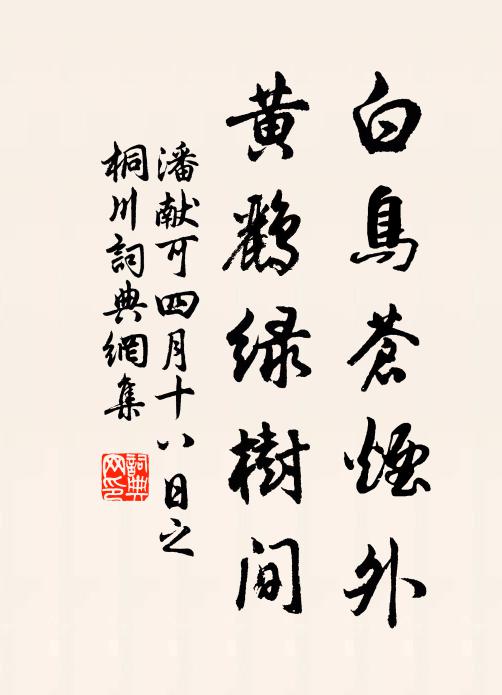 白鳥蒼煙外
黃鸝綠樹間
潘献可四月十八日之
桐川詞典網集
詞典
网印